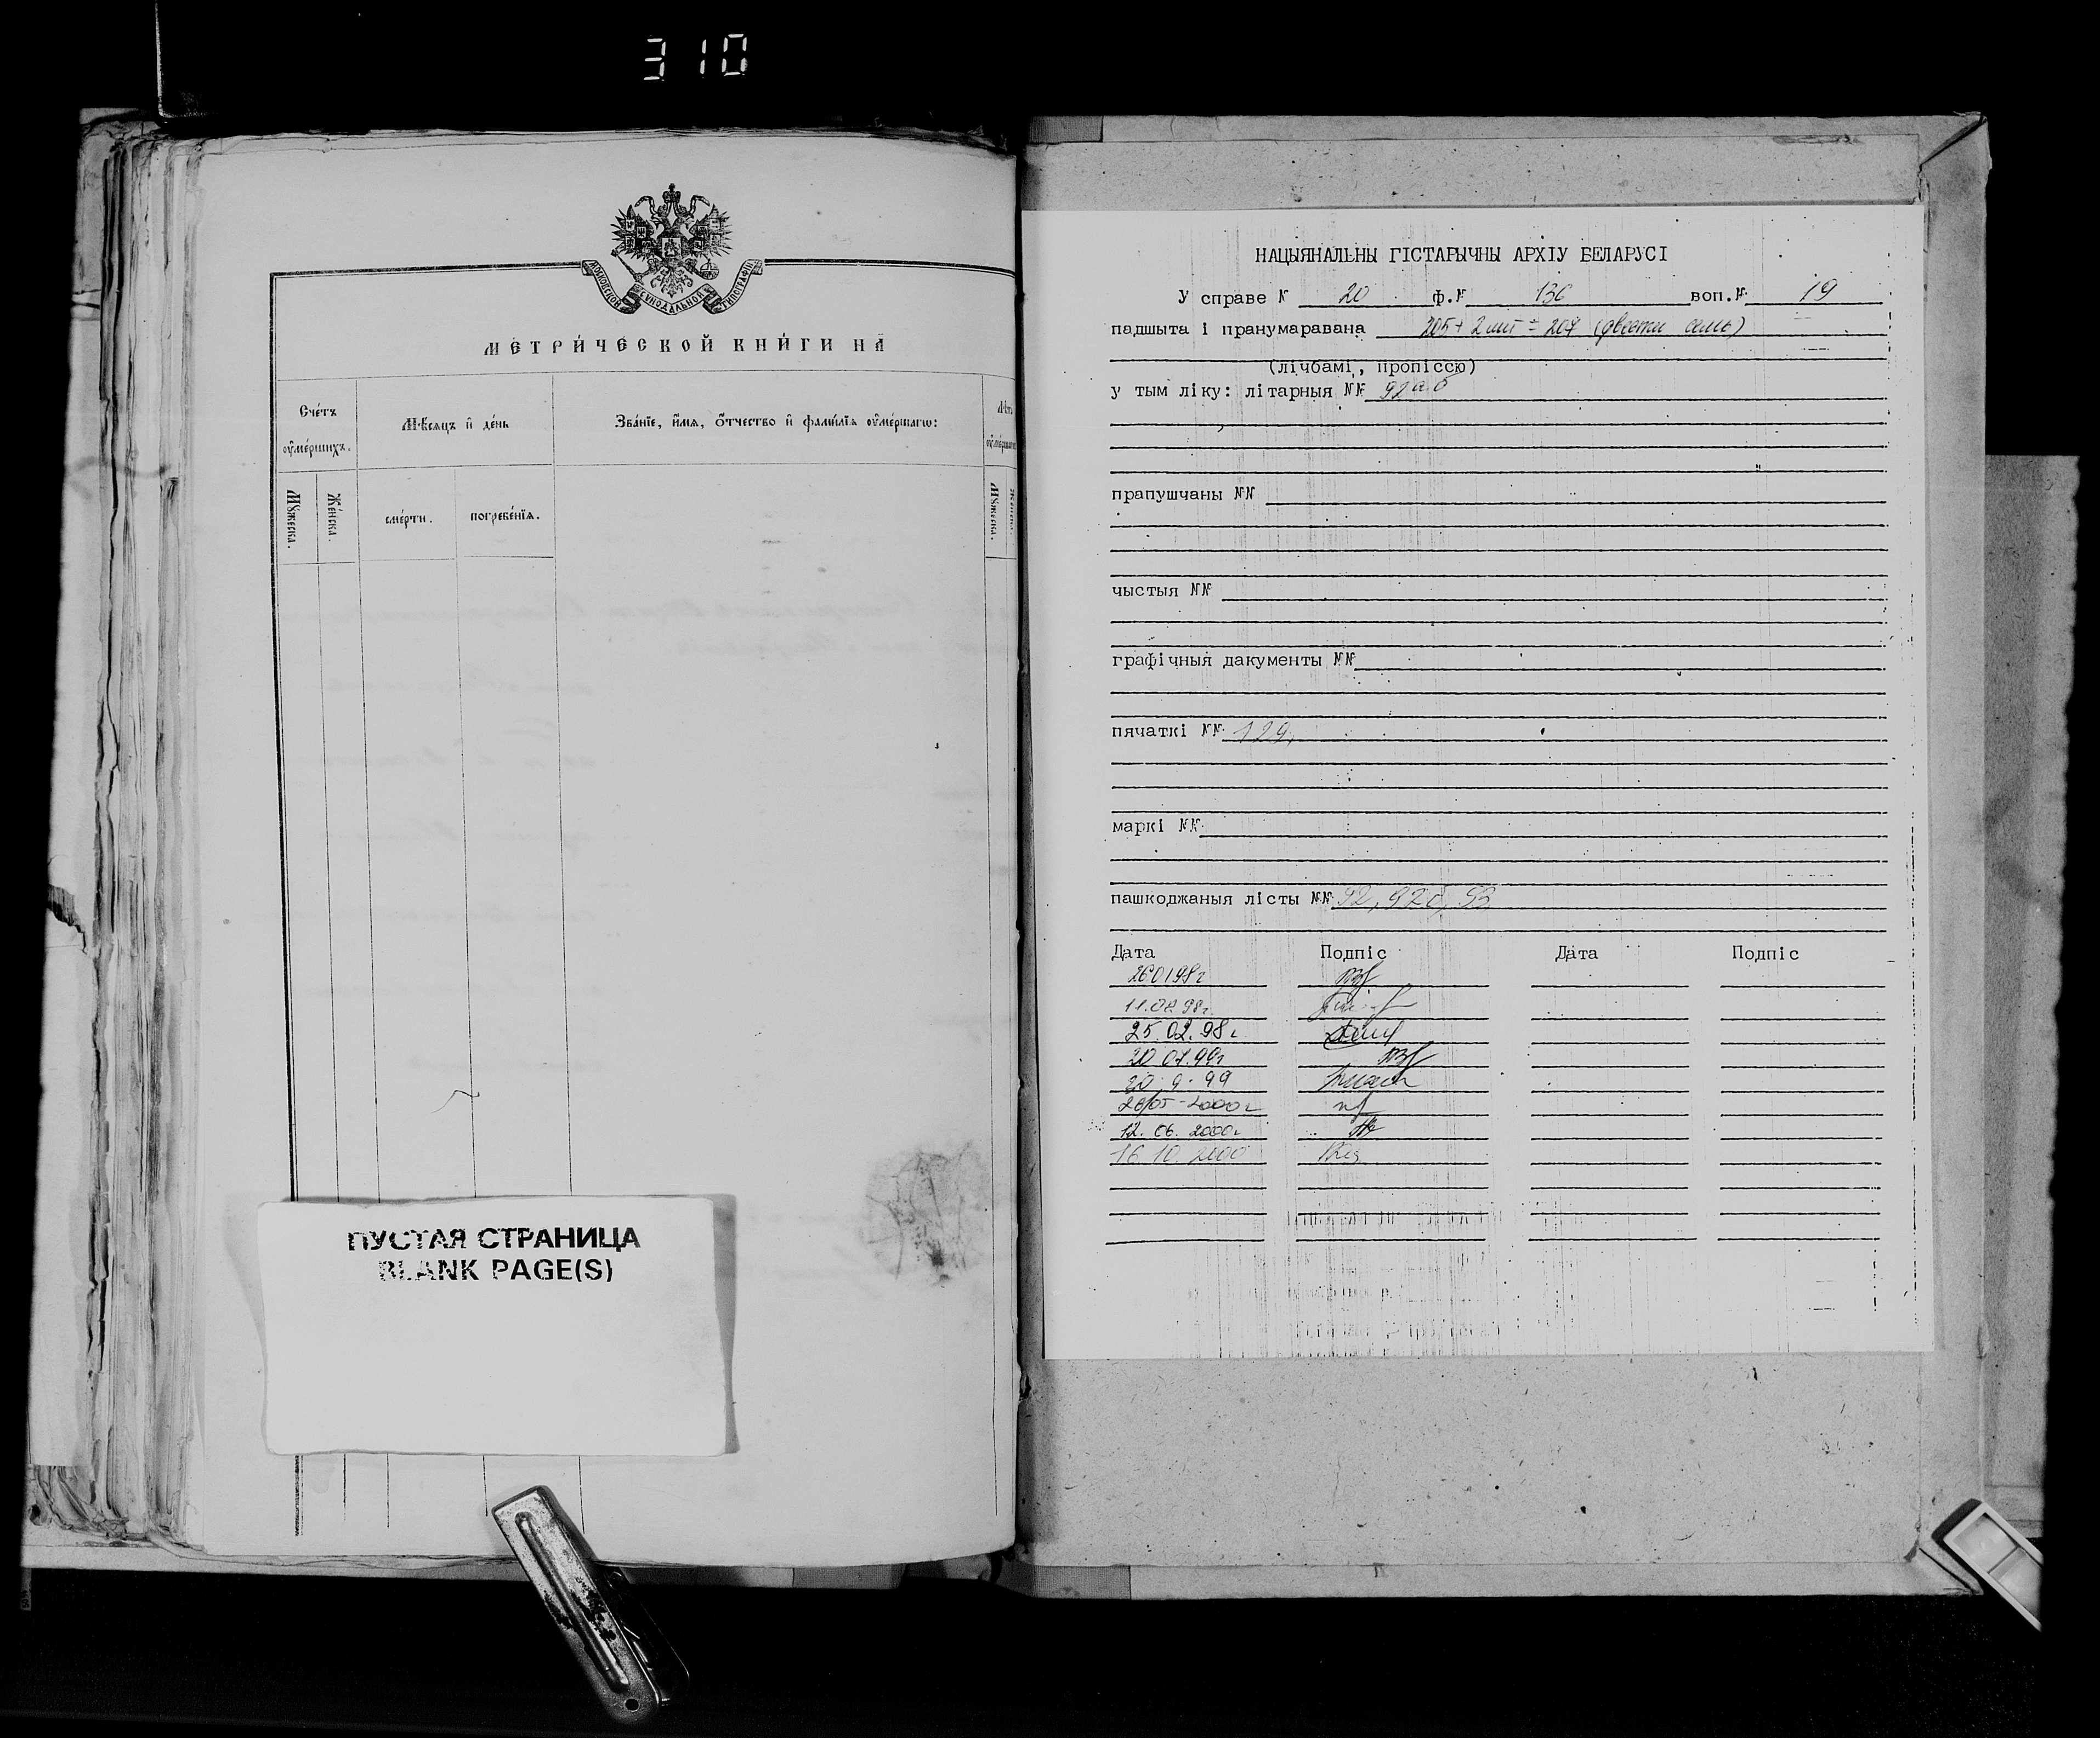 310
МОСКОВСКОЙ СѴНОДАЛЬНОЙ ТИПОГРАФІИ
МЕТРИ́ЧЕСКОЙ КНИ́ГИ НА̀
Сче́тъ ᲂу҆ме́ршихъ.
Мѣ́сѧцъ и҆ де́нь
Зва́нїе, и҆́мѧ, ѻ҆́тчество и҆ фами́лїѧ ᲂу҆ме́ршагѡ:
Мꙋ́жеска.
Же́нска.
сме́рти.
погребе́нїѧ.
Мꙋ́жеска.
ПУСТАЯ СТРАНИЦА
BLANK PAGE(S)
НАЦЫЯНАЛЬНЫ ГІСТАРЫЧНЫ АРХІУ БЕЛАРУСІ
У справе № 20 ф.№ 136 воп.№ 19
падшыта і пранумаравана 205+2лит=207 (двести семь)
(лічбамі, пропіссю)
у тым ліку: літарныя №№ 92а б
прапушчаны №№
чыстыя №№
графічныя дакументы №№
пячаткі №№ 129,
маркі №№
пашкоджаныя лісты №№ 92, 92б, 93
Дата Подпіс Дата Подпіс
260198г
11.02.98г.
25.02.98г
20 07.99г
20.9.99
26/05-2000г
12.06.2000г
16 10. 2000